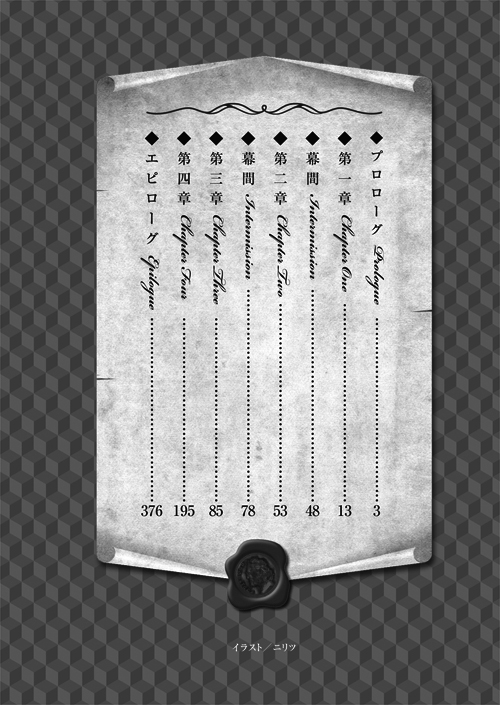 ◆プロローグ Prologue 3
◆第一章 Chapter One 13
◆幕間 Intermission 48
◆第二章 Chapter Two 53
◆幕間 Intermission 78
◆第三章 Chapter Three 85
◆第四章 Chapter Four 195
◆エピローグ Epilogue 376
イラスト／ニリツ